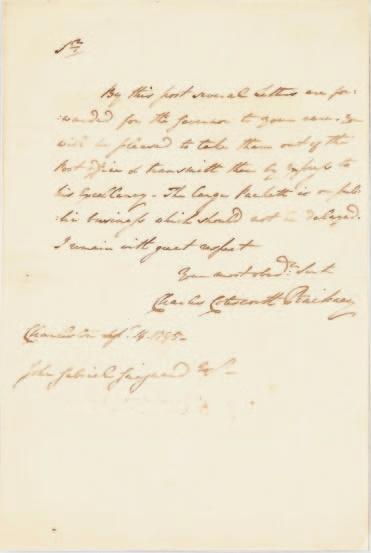 Sr.
By this post several Letters are for:
:warded for the Governor to your care. You
will be pleased to take them out of the
Post Office & transmitt them by Express to
his Excellency. The large Packett is on pub:
:lic business which should not be delayed.
I remain with great respect
Your most obedt. Servt
Charles Cotesworth Pinckney
Charleston Sepr. 1795
John Gabriel Guignard Esqr.